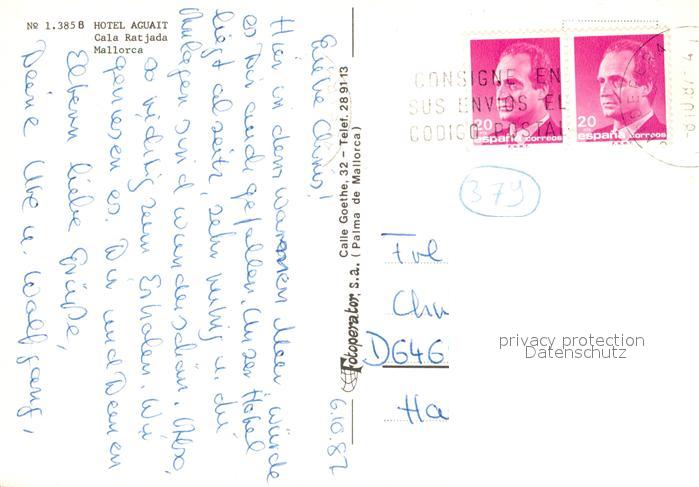 Nº 1.385 B HOTEL AGUAIT
Cala Ratjada
Mallorca
6.10.87
Liebe Christl!
Hier in dem warmen Meer würde
es Dir auch gefallen. Unser Hotel
liegt abseits, sehr ruhig u. die
Anlagen sind wunderschön. Also,
so richtig zum Erholen. Wir
genießen es. Dir und Deinen
Eltern liebe Grüße,
Deine Ute u. Wolfgang.
Fotoperator, s.a. Calle Goethe, 32 - Telef. 28 91 13
(Palma de Mallorca)
CONSIGNE EN
SUS ENVIOS EL
CODIGO POSTAL
20
españa correos
F.N.M.T.
20
españa correos
F.N.M.T.
379
Frl
Ch
D646
Ha
privacy protection
Datenschutz